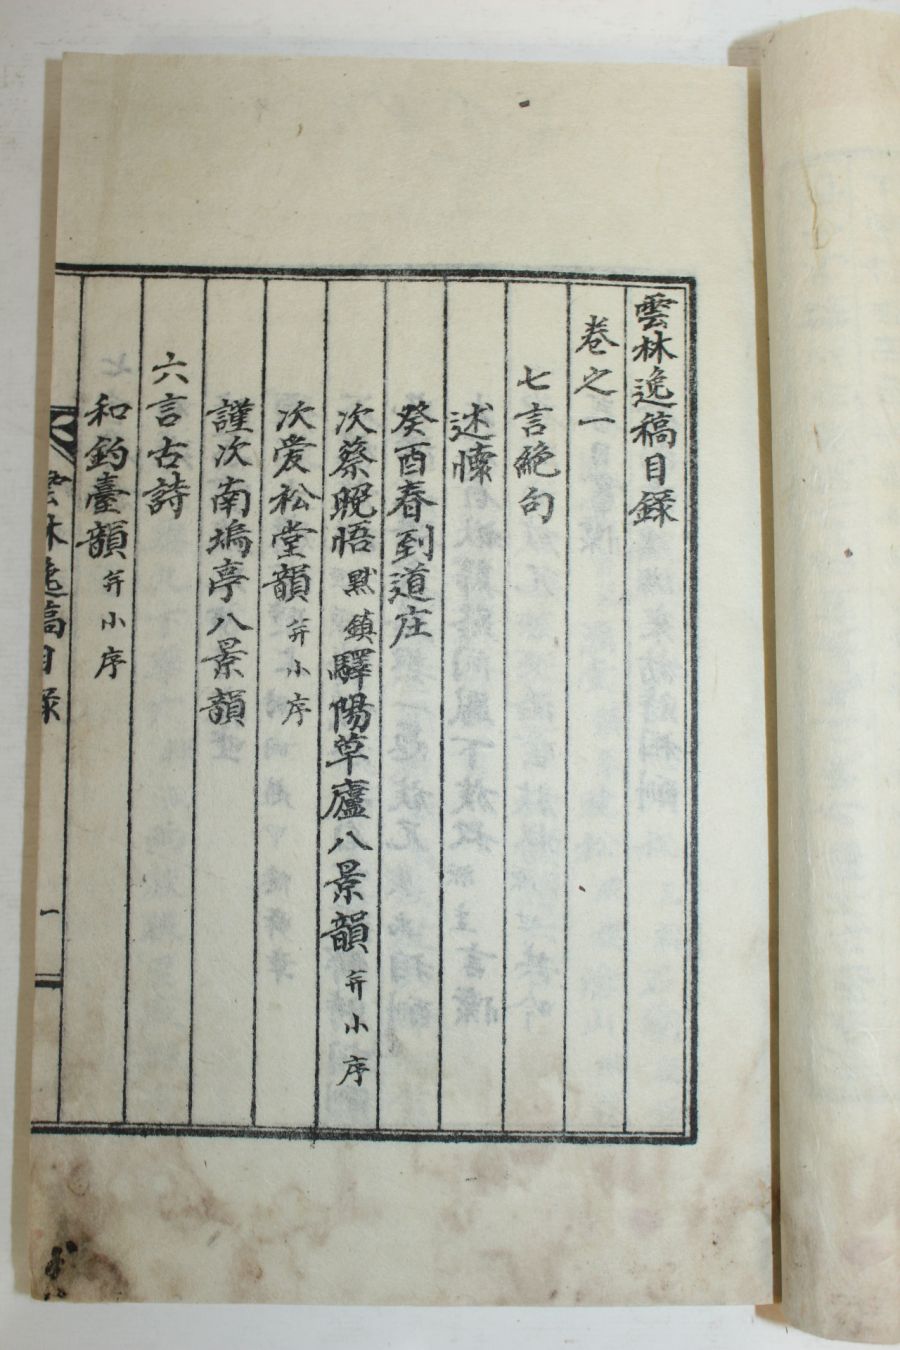 雲林逸稿目録
卷之一
七言絶句
述懷
癸酉春到道庄
次蔡晚悟黙鎮驛陽草廬八景韻并小序
次爱松堂韻并小序
謹次南塢亭八景韻
六言古詩
和釣臺韻并小序
雲林逸稿目録 一